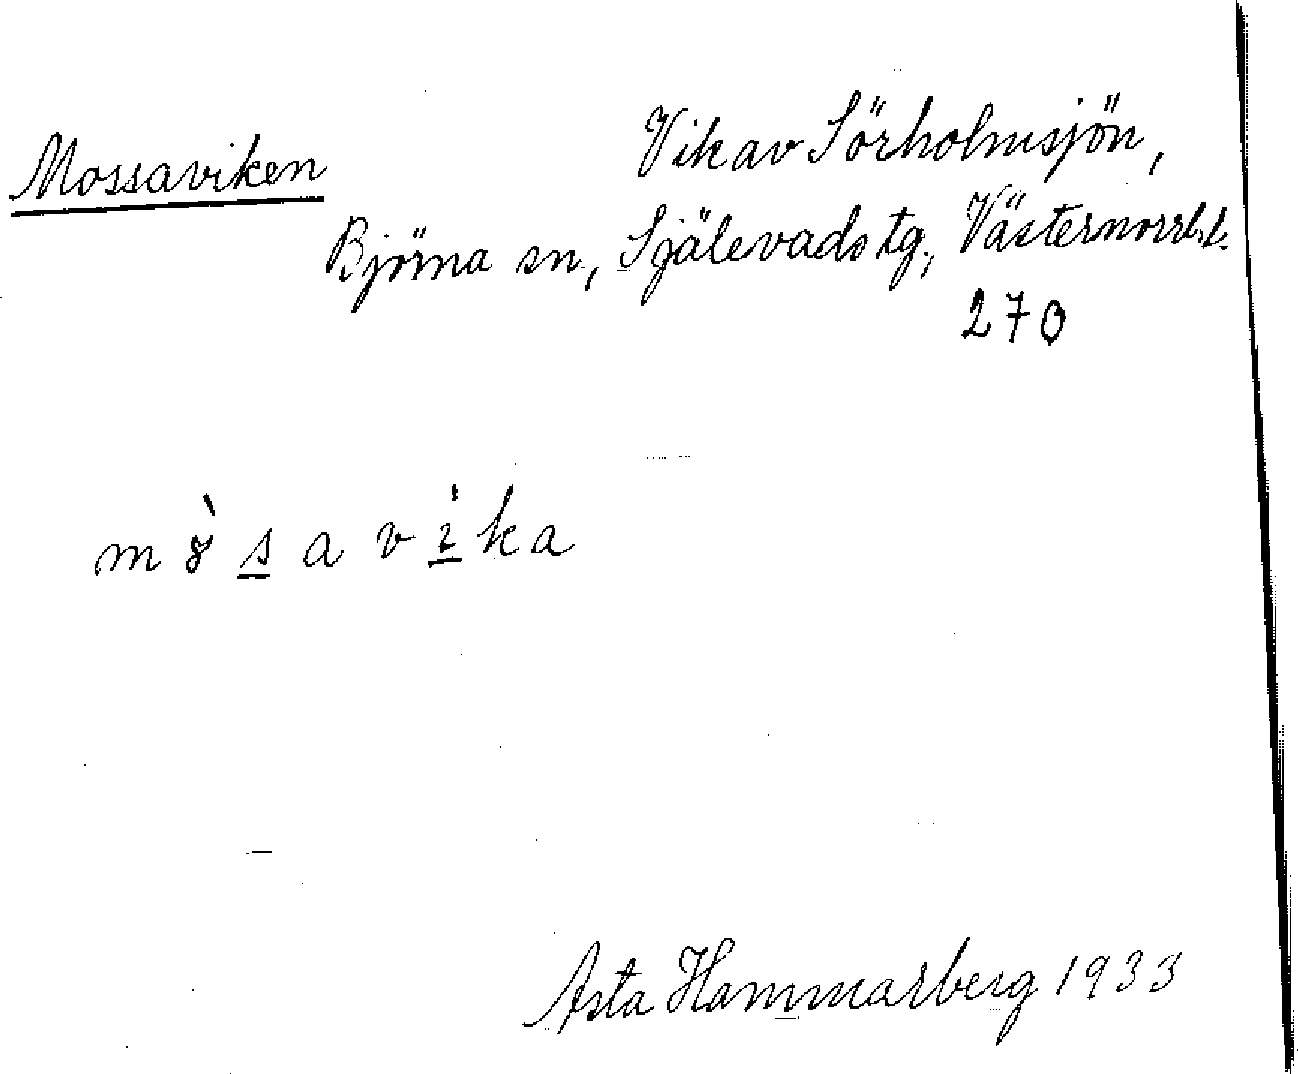 Mossaviken
Vik av Sörholmsjön,
Björna sn, Själevads tg, Västernorrl.l.
270
mɞ̀s̲avi̲̍ka
Asta Hammarberg 1933